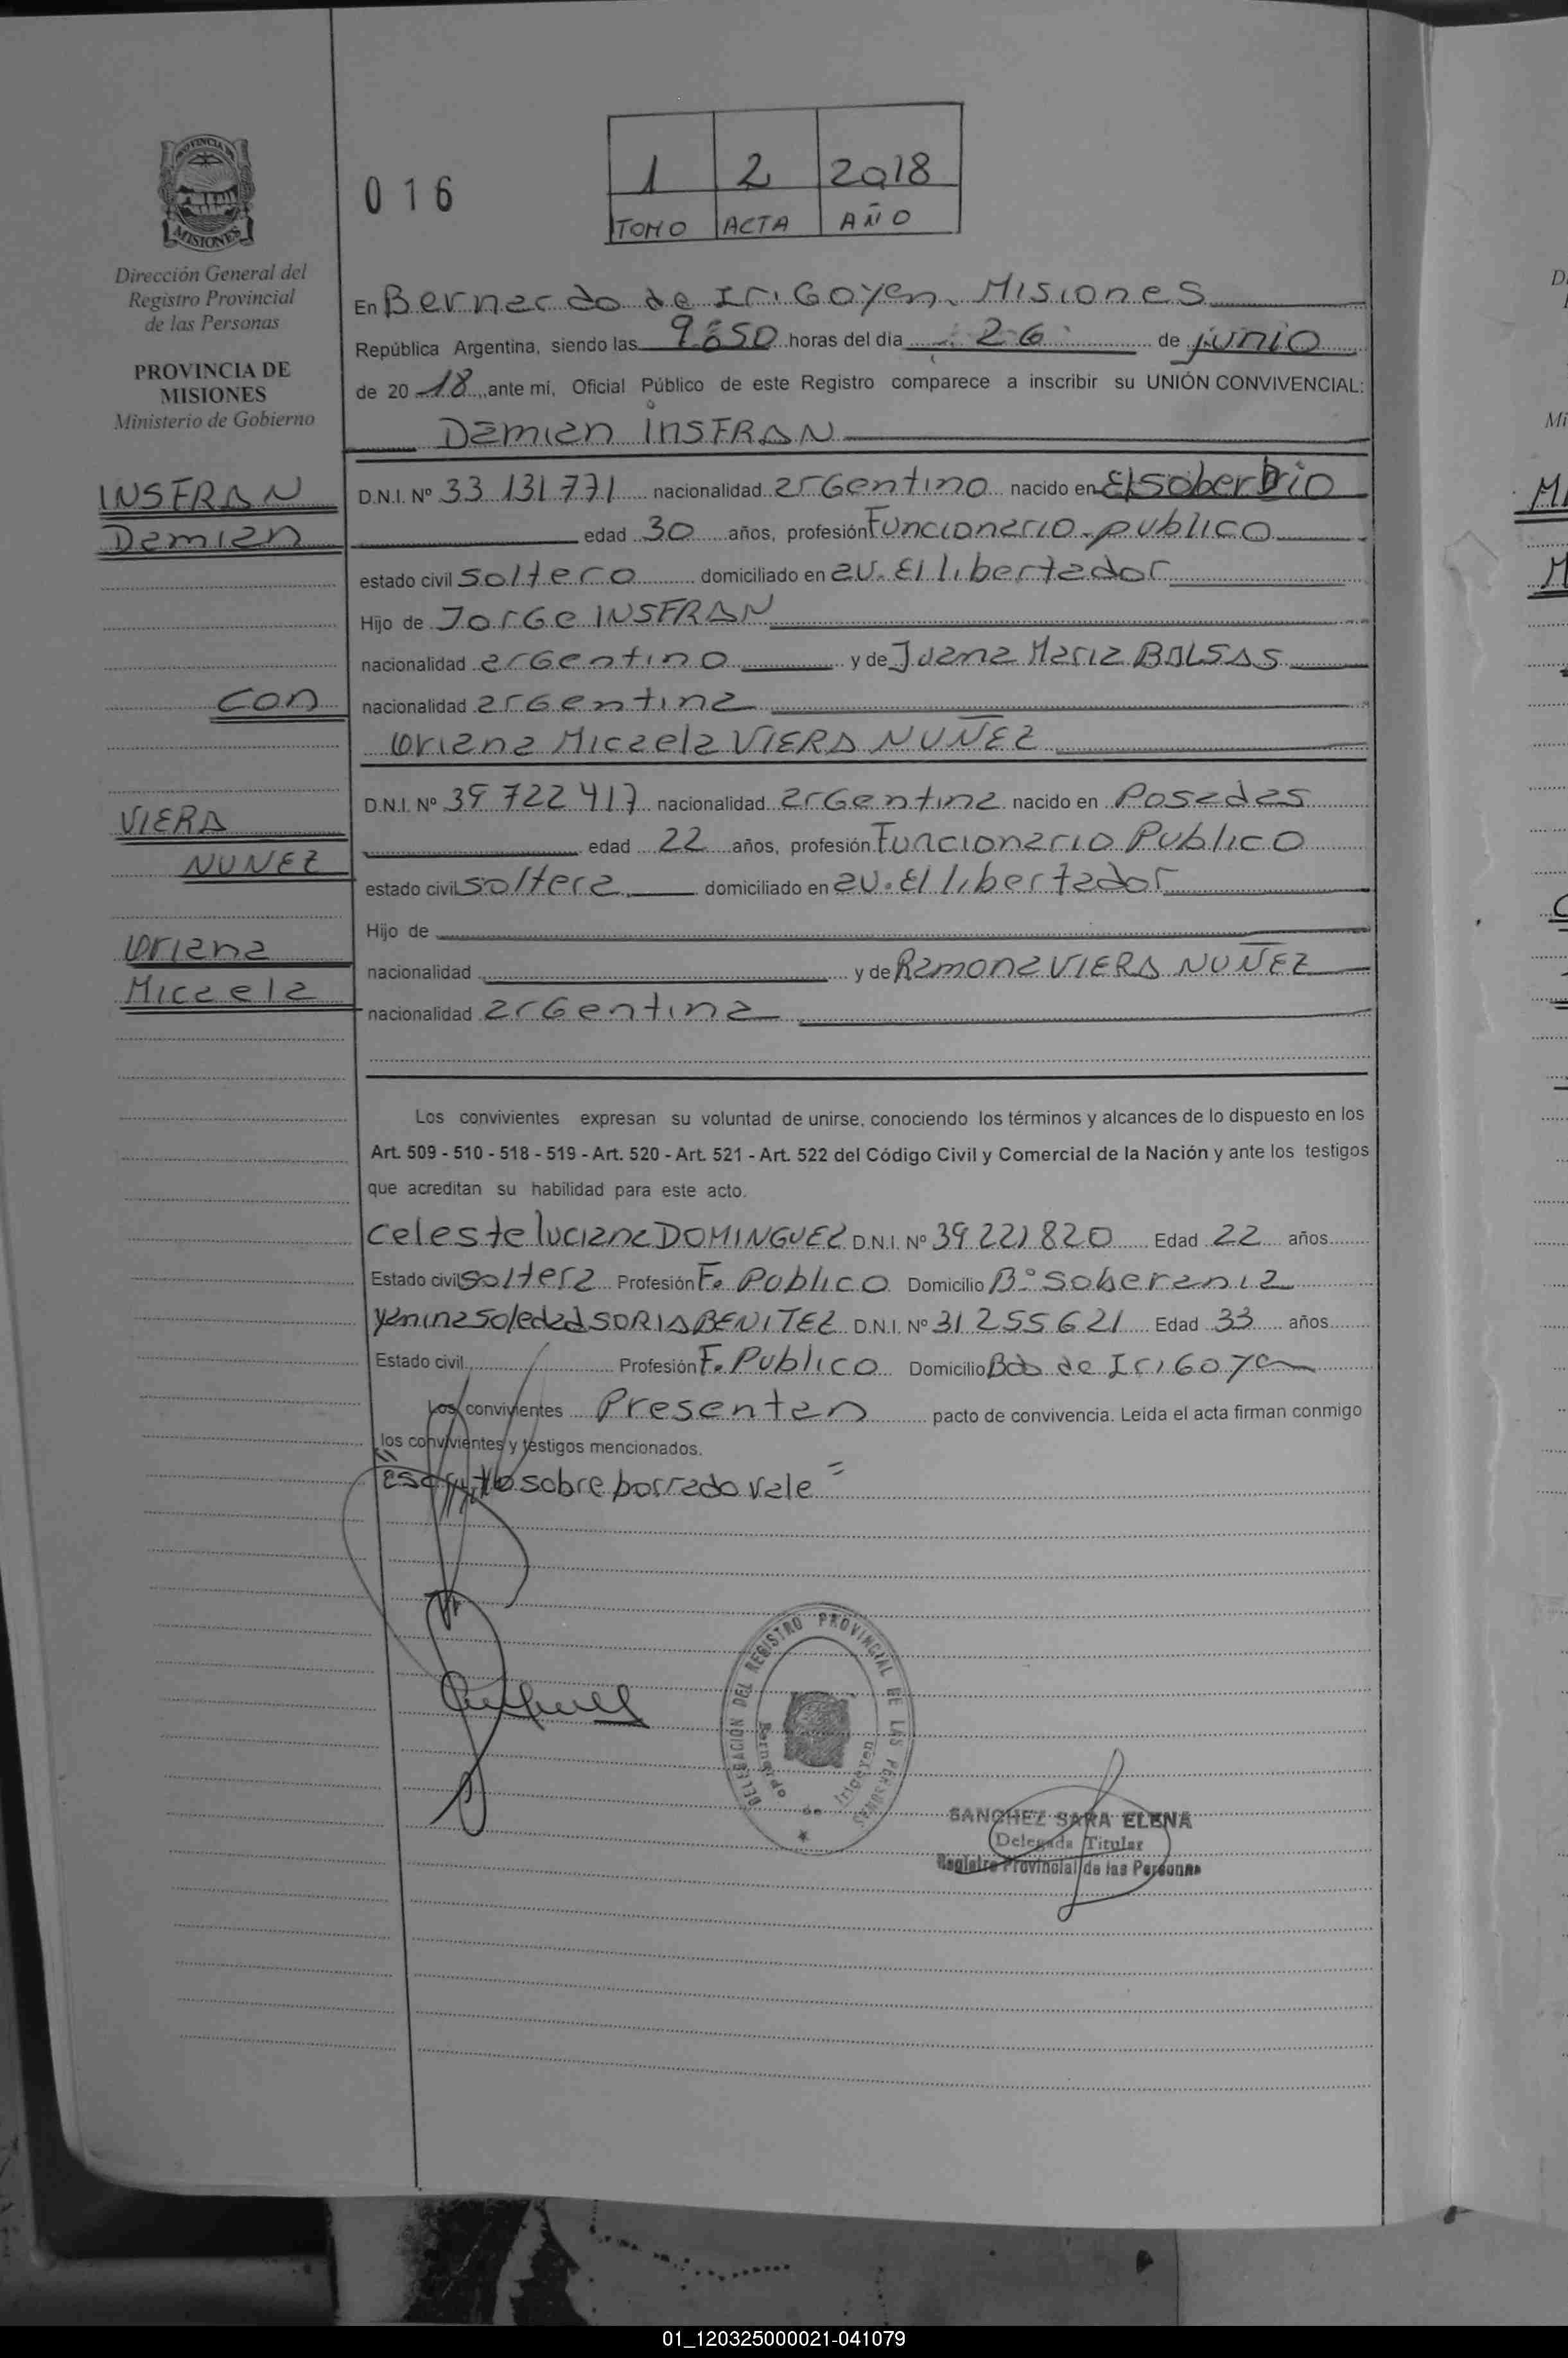 016
1 2 2018
TOMO ACTA AÑO
PROVINCIA DE
MISIONES
Dirección General del
Registro Provincial
de las Personas
PROVINCIA DE
MISIONES
Ministerio de Gobierno
INSFRAN
Damian
con
VIERA
NUNEZ
Oriana
Micaela
En Bernardo de IriGoyen. Misiones
República Argentina, siendo las 9:50 horas del día 26 de junio
de 20 18 ante mí, Oficial Público de este Registro comparece a inscribir su UNIÓN CONVIVENCIAL:
Damian INSFRAN
D.N.I. Nº 33 131 771 nacionalidad arGentino nacido en El soberbio
edad 30 años, profesión Funcionario publico
estado civil soltero domiciliado en av. El libertador
Hijo de JorGe INSFRAN
nacionalidad arGentino y de Juana Maria BALSAS
nacionalidad arGentina
Oriana Micaela VIERA NUÑEZ
D.N.I. Nº 39 722 417 nacionalidad arGentina nacido en Posadas
edad 22 años, profesión Funcionario Publico
estado civil soltera domiciliado en av. El libertador
Hijo de
nacionalidad y de Ramona VIERA NUÑEZ
nacionalidad arGentina
Los convivientes expresan su voluntad de unirse, conociendo los términos y alcances de lo dispuesto en los
Art. 509 - 510 - 518 - 519 - Art. 520 - Art. 521 - Art. 522 del Código Civil y Comercial de la Nación y ante los testigos
que acreditan su habilidad para este acto.
Celeste luciana DOMINGUEZ D.N.I. Nº 39 221 820 Edad 22 años
Estado civil soltera Profesión F. Publico Domicilio Bº Soberania
Yanina Soledad SORIA BENITEZ D.N.I. Nº 31 255 621 Edad 33 años
Estado civil Profesión F. Publico Domicilio Bdo de IriGoyen
Los convivientes Presentan pacto de convivencia. Leída el acta firman conmigo
los convivientes y testigos mencionados.
"Escrito sobre borrado vale"
DELEGACIÓN DEL REGISTRO PROVINCIAL DE LAS PERSONAS
Bernardo de Irigoyen
SANCHEZ SARA ELENA
Delegada Titular
Registro Provincial de las Personas
01_120325000021-041079